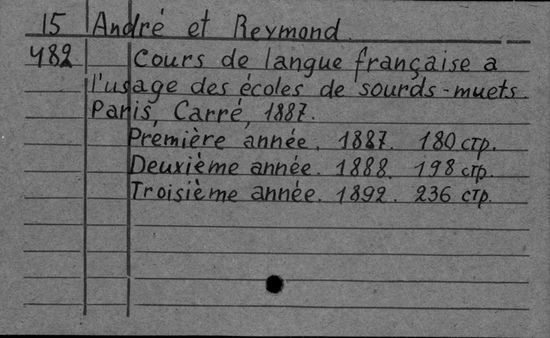 15 André et Reymond.
482 Cours de langue française a
l'usage des écoles de sourds-muets.
Paris, Carré, 1887.
Première année. 1887. 180 стр.
Deuxième année. 1888. 198 стр.
Troisième année. 1892. 236 стр.